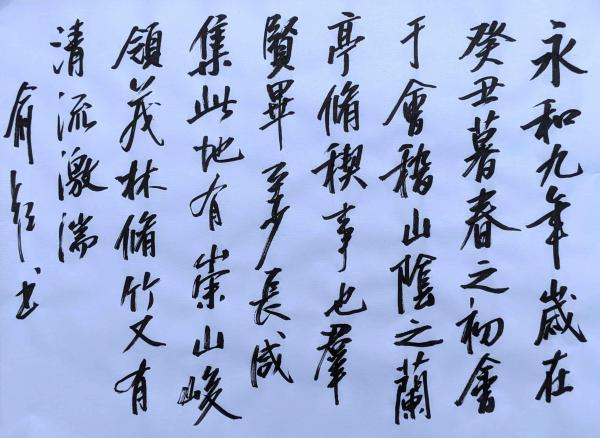 永和九年歲在
癸丑暮春之初會
于會稽山陰之蘭
亭脩稧事也羣
賢畢至少長咸
集此地有崇山峻
領茂林脩竹又有
清流激湍
俞书